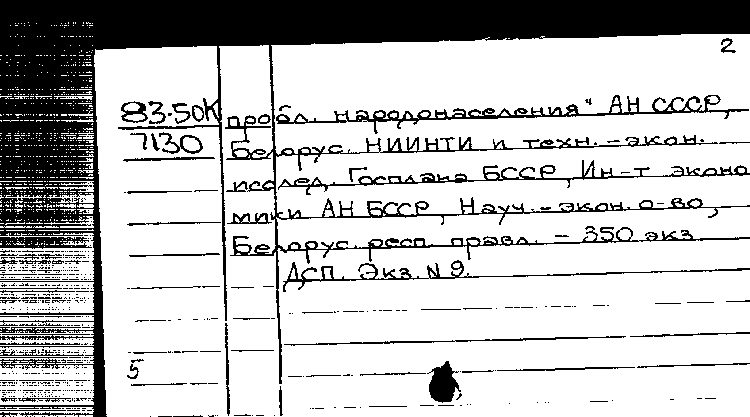 2
83-50К пробл. народонаселения" АН СССР,
7130 Белорус. НИИНТИ и техн.-экон.
исслед. Госплана БССР, Ин-т эконо
мики АН БССР, Науч.-экон. о-во,
Белорус. респ. правл. - 350 экз
ДСП. Экз. N 9.
5